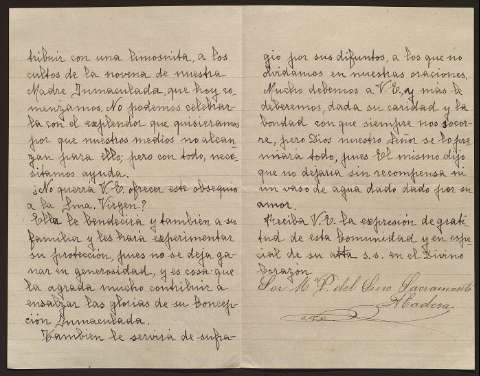 tribuir con una limosnita, a los
cultos de la novena de nuestra
Madre Inmaculada, que hoy co-
menzamos. No podemos celebrar
la con el explendor que quisieramos
por que nuestros medios no alcan-
zan para ello; pero con todo, nece-
sitamos ayuda.
¿No querrá V.E. ofrecer este obsequio
a la Sma. Virgen?
Ella le bendecirá y también a su
familia y les hará experimentar
su protección, pues no se deja ga-
nar en generosidad, y es cosa que
la agrada mucho contribuir a
ensalzar las glorias de su Concep-
ción Inmaculada.
También le servirá de sufra-
gio por sus difuntos, a los que no
olvidamos en nuestras oraciones.
Mucho debemos a V.E. y más le
deberemos, dada su caridad y la
bondad con que siempre nos socor-
re, pero Dios nuestro Señor se lo pre-
miará todo, pues El mismo dijo
que no dejaria sin recompensa ni
un vaso de agua dado dado por su
amor.
Reciba V.E. la expresión de grati-
tud de esta Comunidad y en espe-
cial de su atta s.s. en el Divino
Corazon
Sor Mª P. del Smo Sacramento
Abadesa